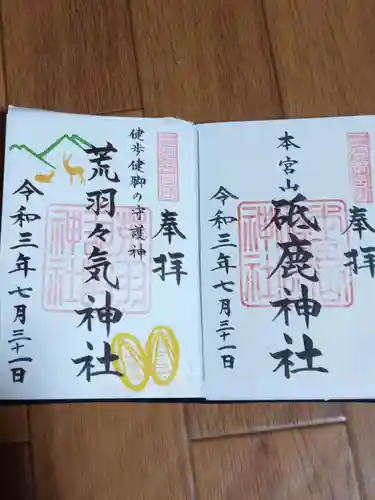 奉拝
本宮山
砥鹿神社
令和三年七月三十一日
奉拝
健歩健脚の守護神
荒羽々気神社
令和三年七月三十一日